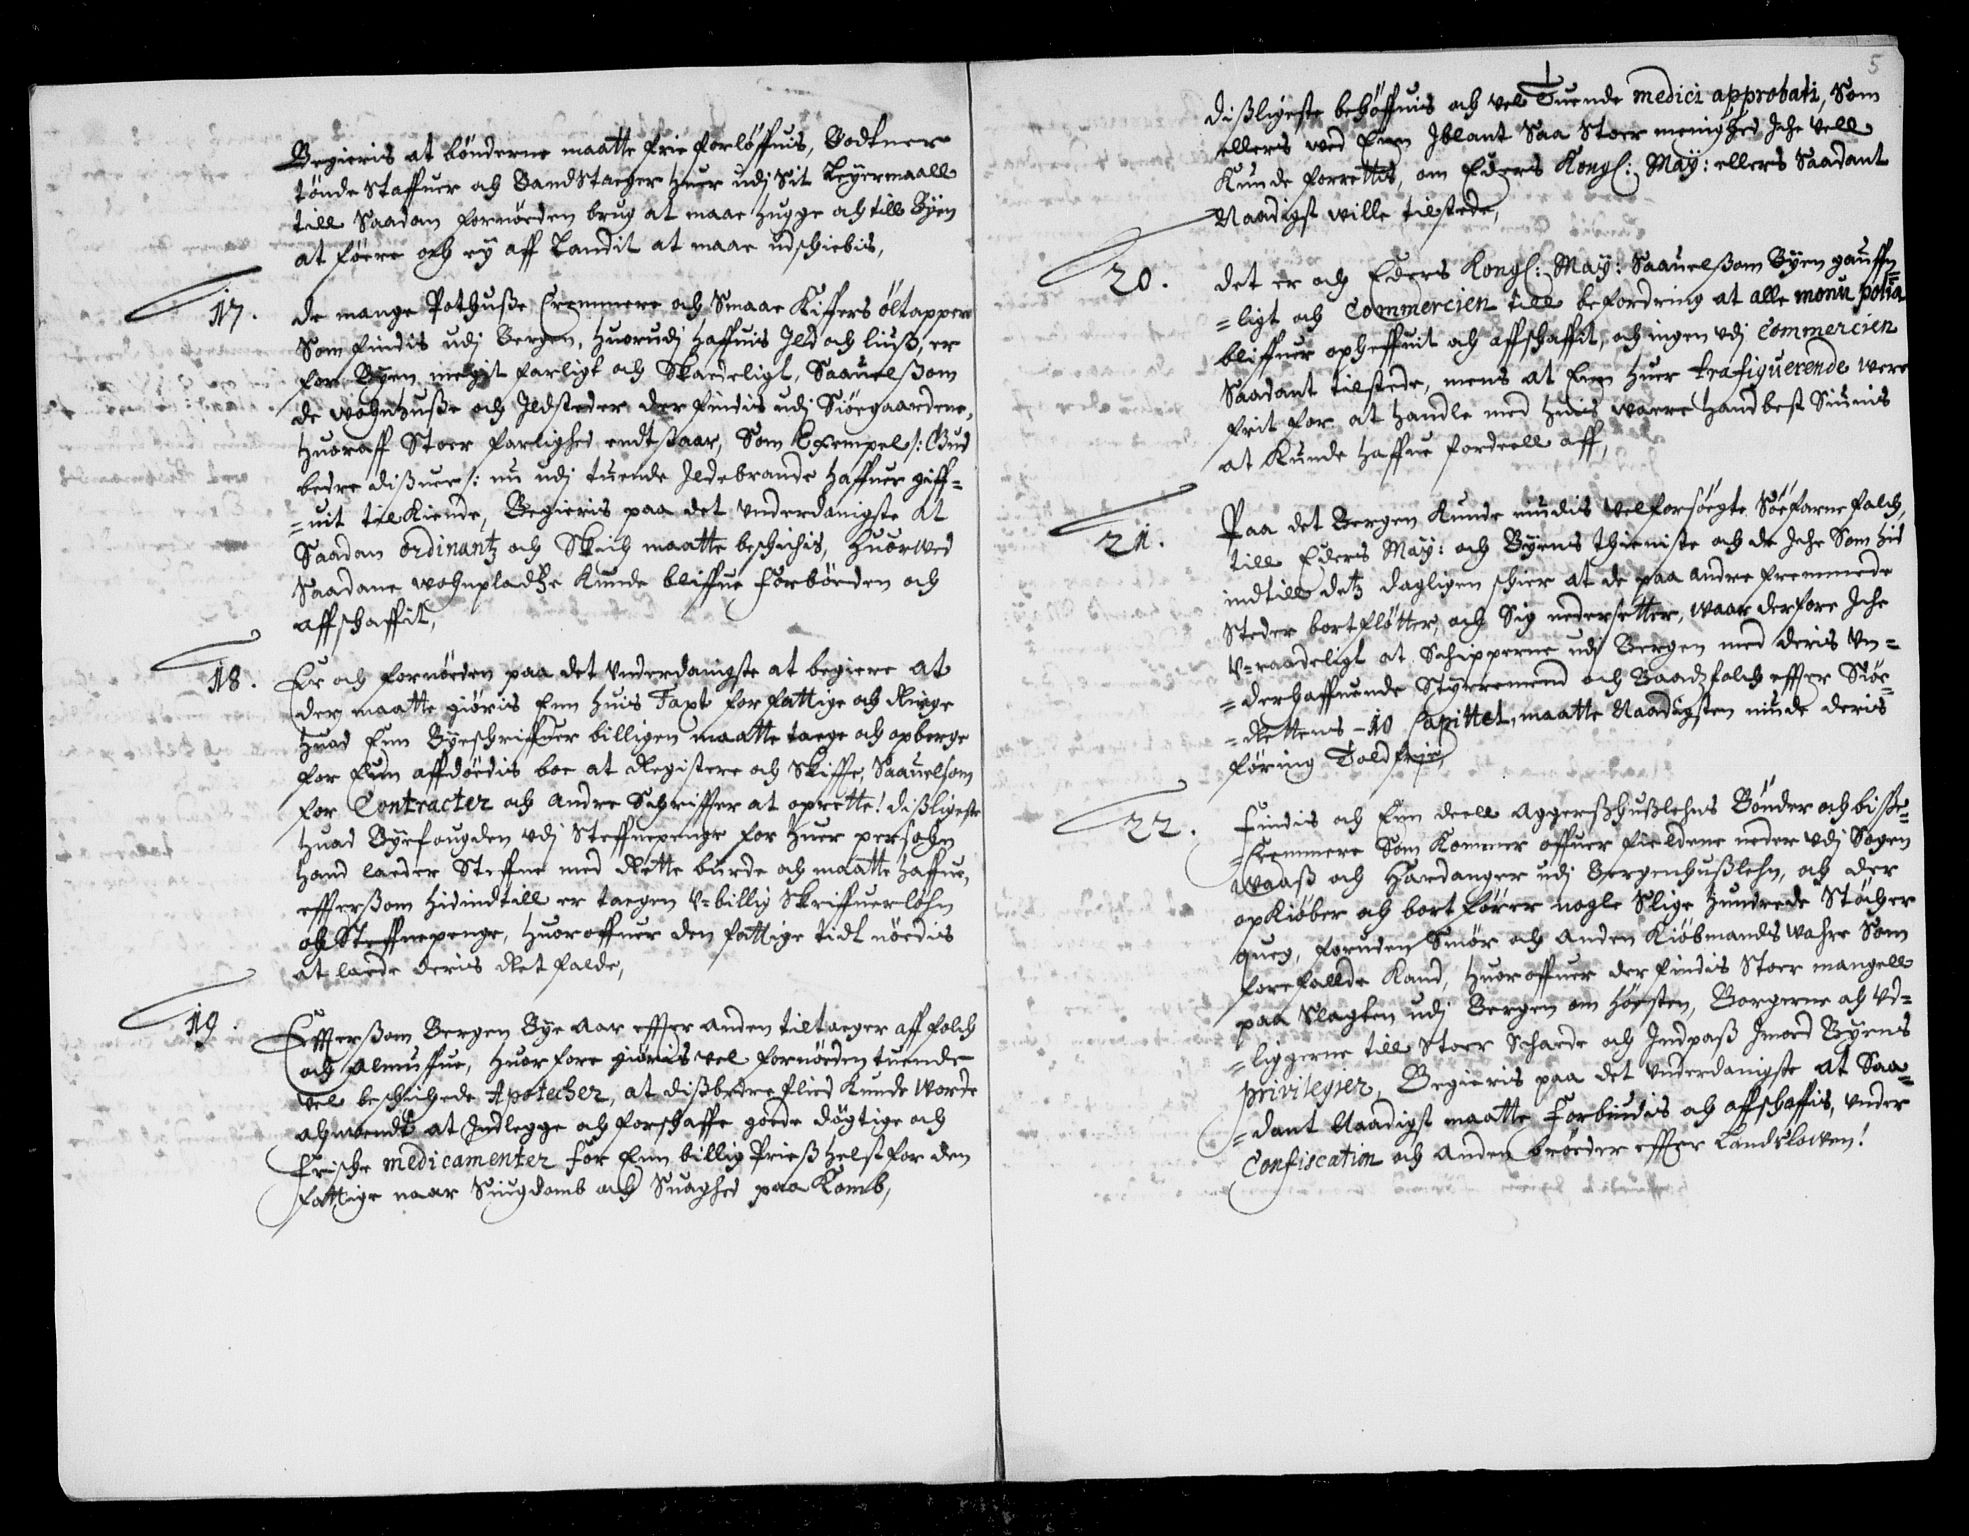 Begieris at bønderne maatte frie forløffuis, Bodtner
tønde Staffuer och BandStaeger huer udj Sit Leyermaall
till Saadan fornøeden brug at maae hugge och till Byen
at føere och ey aff Landit at maae udschiebis,
17. de mange Pothuße Cremmere och Smaae Kiffers öltapper
Som findis udj Bergen, huorudj haffuis Jld och liuß, er
for Byen megit farligt och Skaedeligt, Saauelßom
de wohnhuße och Jldsteder der findis udj Siöegaardene,
huoraff Stoer farlighed endtstaar, Som Exempel /: Gud
bedre dißuer :/ nu udj tuende Jldebrande haffuer giff=
=uit tilKiende, Begieris paa det vnderdanigste at
Saadan ordinantz och Skich maatte beschichis, huorwed
Saadane wohnpladtze Kunde bliffue forbøeden och
affschaffit,
18. Er och fornøeden paa det vnderdanigste at begiere at
der maatte giøris Enn huis Taxt for fattige och Ringe
huad Enn Byeschriffuer billigen maatte taege och opberge
for Enn affdøedis boe at Registere och Skiffte, Saauelsom
for Contracter och andre Schriffter at oprette! dißligeste
huad Byefougden vdj Steffnepenge for huer persohn
hand laeder Steffne med Rette burde och maatte haffue,
effterßom hidindtill er taegen V=billig Skriffuerlöhn
och Steffnepenge, huoroffuer den fattige tidt nöedis
at laede deris Ret falde,
19. Effterßom Bergen Bye aar effter anden tiltaeger aff folch
och Almuffue, huorfore giøris vel fornøeden tuende
vel beschichede Apotecher, at dißbedre flied Kunde worde
ahnwendt at Jndlegge och forschaffe goede døgtige och
frische medicamenter for Enn billig Prieß helst for den
fattige naar Siugdomb och Suaghed paa Komb,
5
dißligeste behøffuis och vel Tuende medici approbati, Som
ellers wed Enn Jblant Saa Stoer menighed Jche vell
Kunde forrettis, om Eders Kongl: May: ellers Saadant
Naadigst wille tilstede,
20. det er och Eders Kongl: May: Saauelßom Byen gauffn
=ligt och Commercien till befordring at alle monu polia
bliffuer opheffuit och affschaffit, och ingen vdj Commercien
Saadant tilstede, mens at Enn huer trafiquerende were
frit for at handle med huis waere hand best Siunis
at Kunde haffue fordeell aff,
21. Paa det Bergen Kunde niudis velforsøegte Söefarne folch,
till Eders May: och Byens thienniste och de Jche Som hid
indtill detz dagligen schier at de paa andre fremmede
Steder bortfløtter, och Sig nedersetter, waar derfore Jche
V=raadeligt at Schipperne udj Bergen med deris Vn=
=derhaffuende Styrremend och Baadzfolch effter Siöe=
=Rettens =10 Capittel, maatte Naadigsten niude deris
føring Toldfrie,
22. Findis och Enn deell Aggerßhußlehns Bönder och biße=
=Cremmere Som Kommer offuer fieldene neder vdj Sogen
Waaß och Hardanger udj Bergenhußlehn, och der
opKiøber och bortfører nogle Slige hundrede Støcher
queg, foruden Smør och anden Kiøbmands wahre Som
forefallde Kand, huoroffuer der findis Stoer mangell
paa Slagten udj Bergen om høesten, Borgerne och Vd=
=liggerne till Stoer Schaede och Jndpaß Jmoed Byens
privilegier, Begieris paa det vnderdanigste at Saa=
=dant Naadigst maatte forbiudis och affschaffis, vnder
Confiscation och anden brøeder effter Landslowen!